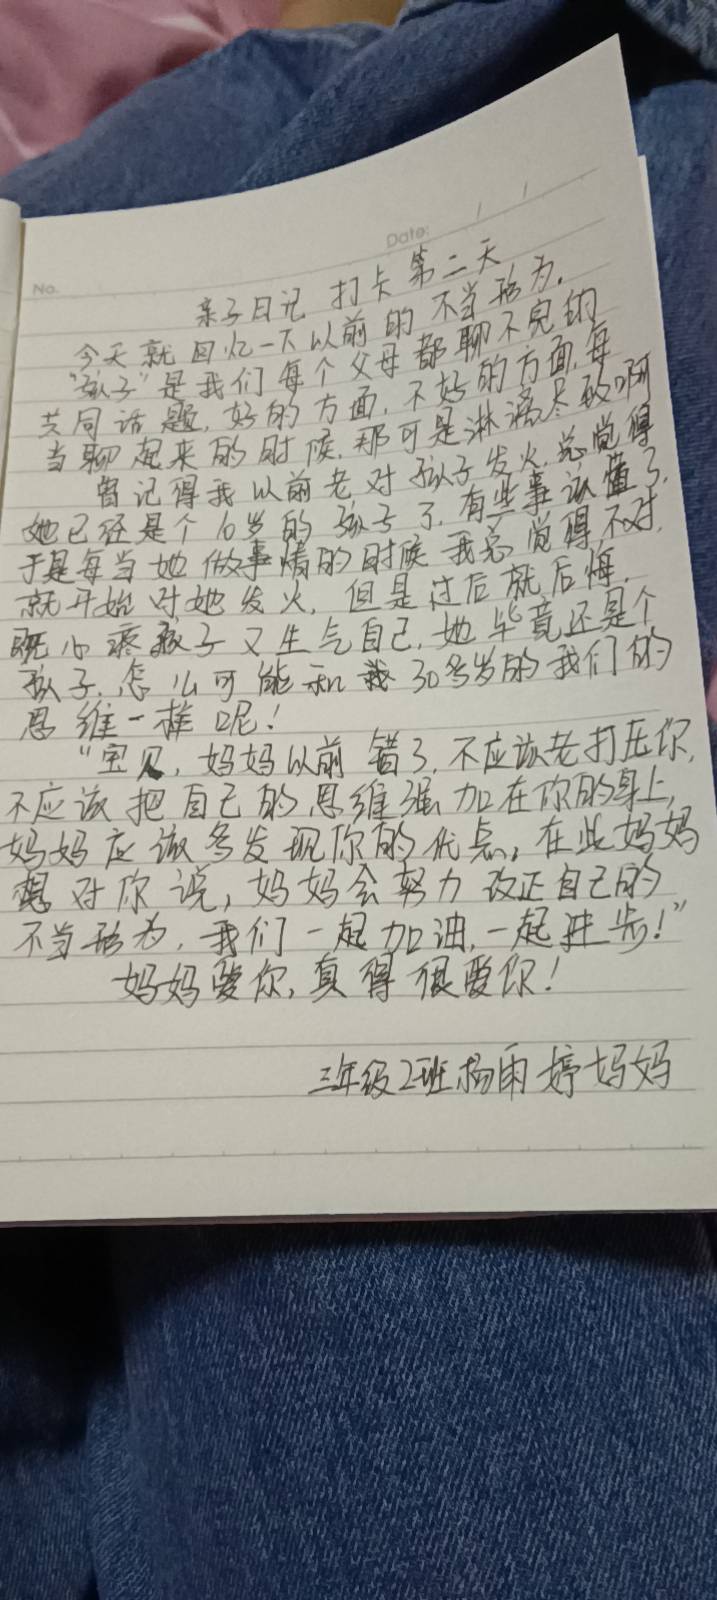 Date:
No.
亲子日记 打卡 第二天
今天就回忆一下以前的不当形为.
"孩子"是我们每个父母都聊不完的
共同话题,好的方面,不好的方面,每
当聊起来的时候,那可是淋漓尽致啊
曾记得我以前老对孩子发火,总觉得
她已经是个10岁的孩子了,有些事该懂了,
于是每当她做事情的时候我总觉得不对,
就开始对她发火,但是过后就后悔,
既心疼孩子又生气自己,她毕竟还是个
孩子,怎么可能和我30多岁的我们的
思维一样呢!
"宝贝,妈妈以前错了,不应该老打压你,
不应该把自己的思维强加在你的身上,
妈妈应该多发现你的优点,在此妈妈
想对你说,妈妈会努力改正自己的
不当形为,我们一起加油,一起进步!"
妈妈爱你,真得很爱你!
三年级2班杨雨婷妈妈